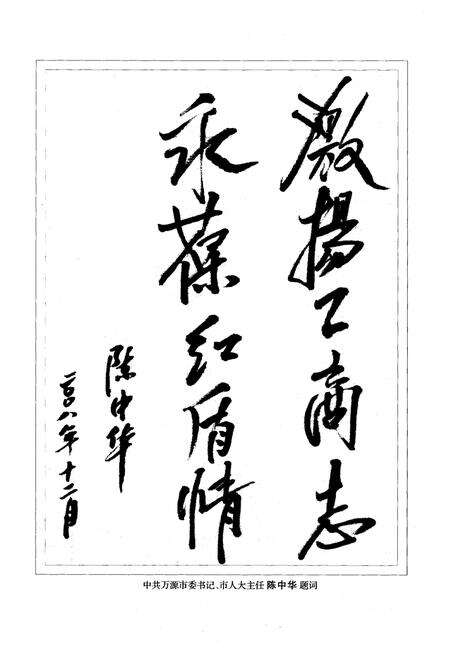 激扬工商志
永葆红盾情
陈中华
二〇〇八年十二月
中共万源市委书记、市人大主任 陈中华 题词